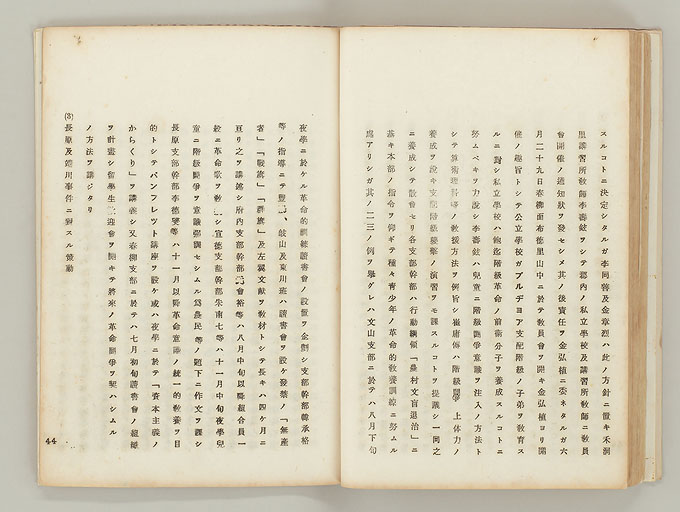 スルコトニ決定シタルガ李同善及金章烈ハ此ノ方針ニ置キ禾洞
里講習所教師李壽鉉ヲシテ郡內ノ私立學校及講習所教師ニ教員
會開催ノ通知狀ヲ發セシメ其ノ後責任ヲ金弘植ニ委ネタルガ六
月二十九日春柳面布德里山中ニ於テ教員會ヲ開キ金弘植ヨリ開
催ノ趣旨トシテ公立學校ガブルヂョア支配階級ノ子弟ヲ教育ス
ルニ對シ私立學校ハ飽迄階級革命ノ前衛分子ヲ養成スルコトニ
努ムベキヲ力說シ李壽鉉ハ兒童ニ階級鬪爭意識ヲ注入ノ方法ト
シテ算術理科等ノ教授方法ヲ例旨シ崔庸傳ハ階級鬪爭上體力ノ
養成ヲ說キ支配階級襲擊ノ演習ヲモ課スルコトヲ提議シ一同之
ニ養成シテ散會セリ各支部幹部ハ行動綱領「農村文盲退治」ニ
基キ本部ノ指令ヲ仰ギテ種々青少年ノ革命的教養訓練ニ努ムル
處アリシガ其ノ二三ノ例ヲ擧グレハ文山支部ニ於テハ八月下旬
夜學ニ於ケル革命的訓練讀書會ノ設置ヲ企劃シ支部幹部韓承格
等ノ指導ニテ 岐山及東川班ハ讀書會ヲ設ケ發禁ノ「無產
者」「戰旗」「群旗」及左翼文獻ヲ教材トシテ長キハ四ケ月ニ
亘リ之ヲ講述シ府內支部幹部 會裕等ハ八月中旬以降組合員一
般ニ革命歌ヲ教 シ宣德支部幹部朱南七等ハ十一月中旬夜學兒
童ニ階級鬪爭ヲ意識强調セシムル爲農民等ノ題下ニ作文ヲ課シ
長原支部幹部李德燮等ハ十一月以降革命意識ノ統一的教養ヲ目
的トシテパンフレツト講座ヲ設ケ或ハ夜學ニ於テ「資本主義ノ
からくり」ヲ講義シ又春柳支部ニ於テハ七月初旬讀書會ノ組織
ヲ計畫シ留學生 迎會ヲ開キテ將來ノ革命鬪爭ヲ契ハシムル
ノ方法ヲ講ジタリ
(3) 長原及 川事件ニ對スル策動
44